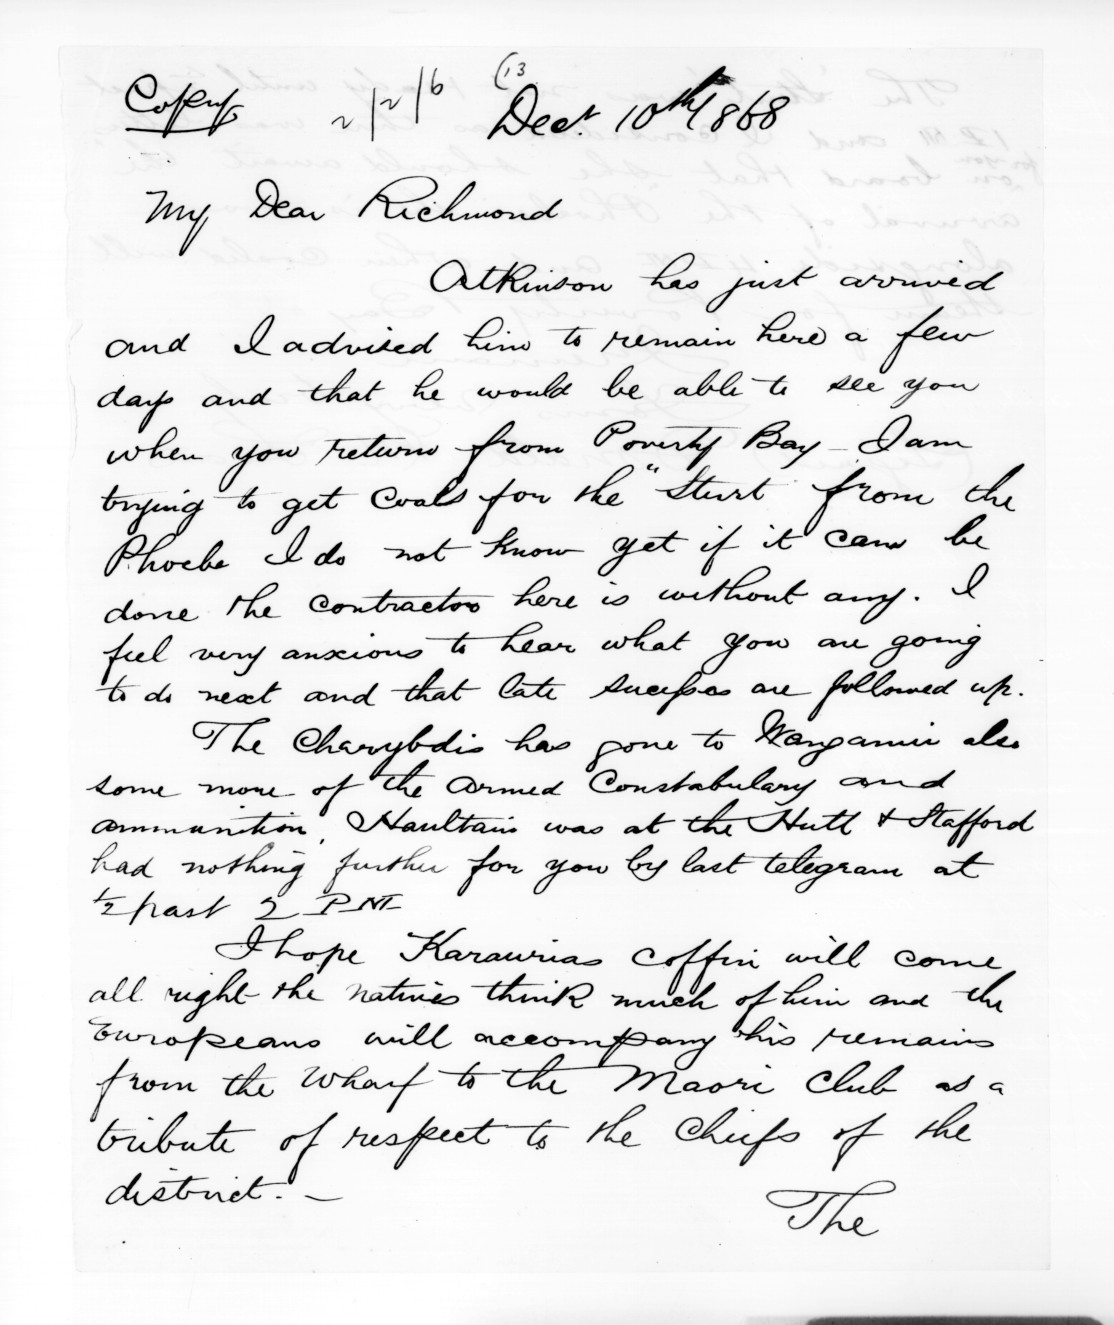 Copy 2/2/6 (13 Decr 10th/1868
My Dear Richmond
Atkinson has just arrived
and I advised him to remain here a few
days and that he would be able to see you
when you return from Poverty Bay – I am
trying to get Coals for the "Sturt from the
Phoebe I do not know yet if it can be
done the contractor here is without any. I
feel very anxious to hear what you are going
to do next and that late sucesses are followed up.
The Charybdis has gone to Wanganui also
some more of the Armed Constabulary and
ammunition, Haultain was at the Hutt & Stafford
had nothing further for you by last telegram at
½ past 2 PM
I hope Karaurias coffin will come
all right the natives think much of him and the
Europeans will accompany his remains
from the Wharf to the Maori Club as a
tribute of respect to the Chiefs of the
district. –
The